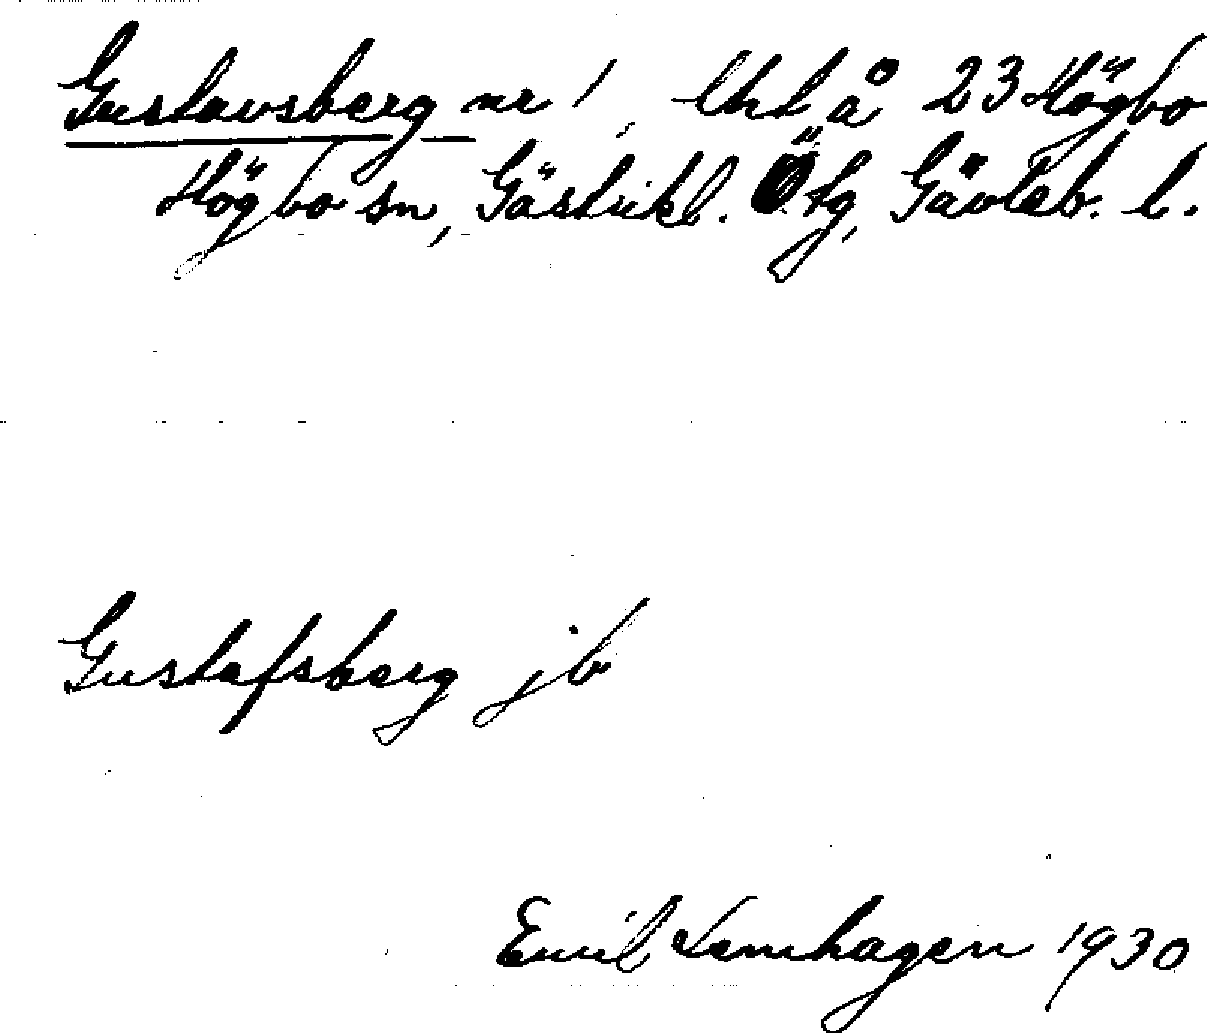 Gustavsberg nr 1, lht å 23 Högbo
Högbo sn, Gästrikl. Ö tg, Gävleb. l.
Gustafsberg jb
Emil Lemhagen 1930